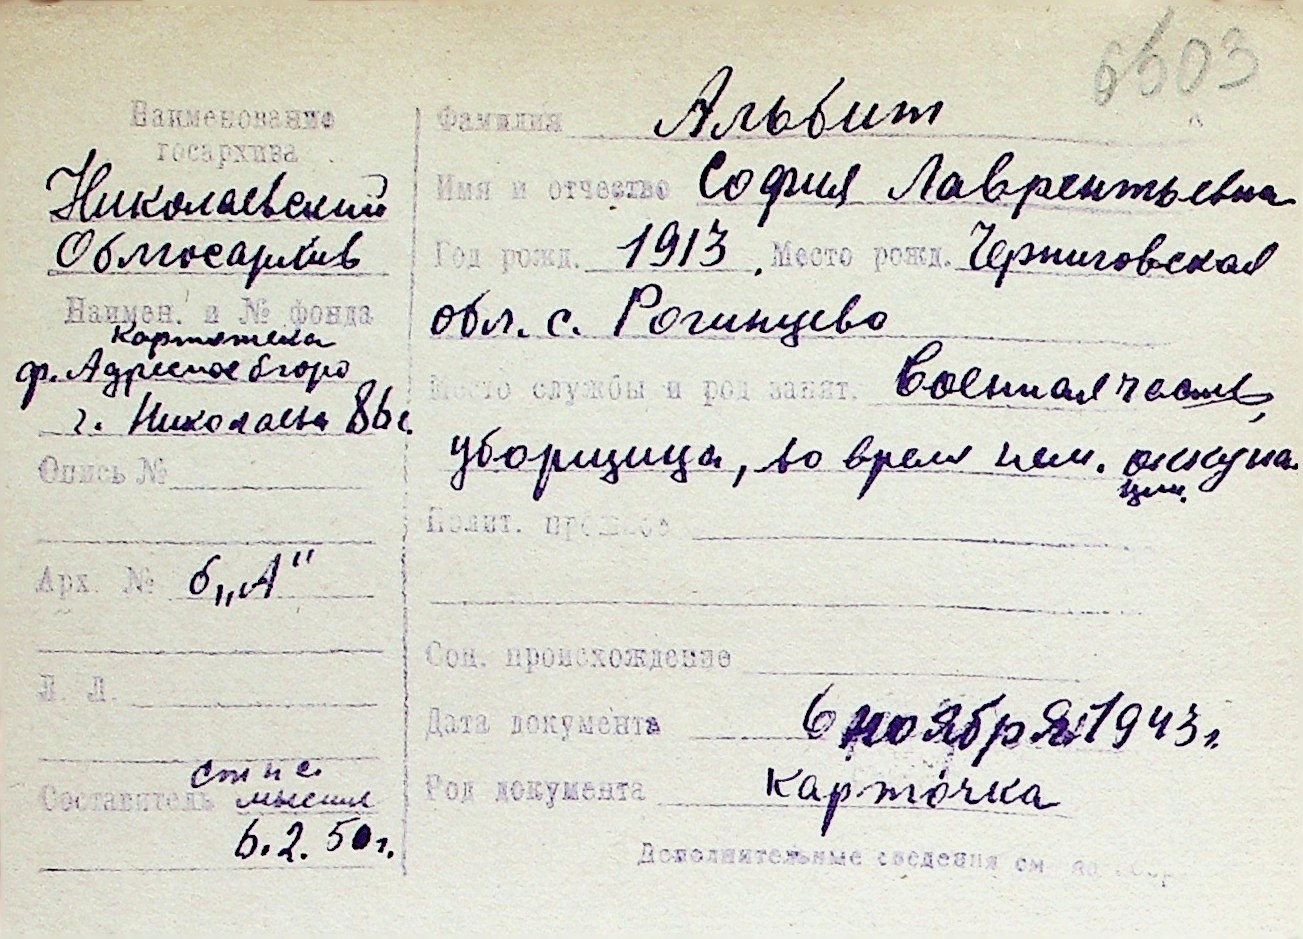 6603
Наименование
госархива
Николаевский
Облгосархив
Наимен. и № фонда
Картотека
ф. Адресное бюро
г. Николаева
Опись №
Арх. № б „А"
Л. Л.
Составитель
6.2.50г.
Фамилия Альбит
Имя и отчество София Лаврентьевна
Год рожд. 1913. Место рожд. Черниговская
обл. с. Рогинцево
Место службы и род занят. Военная часть,
уборщица, во время нем. оккупа-
ции.
Полит. прошлое
Соц. происхождение
Дата документа 6 ноября 1943г.
Род документа карточка
Дополнительные сведения см. на